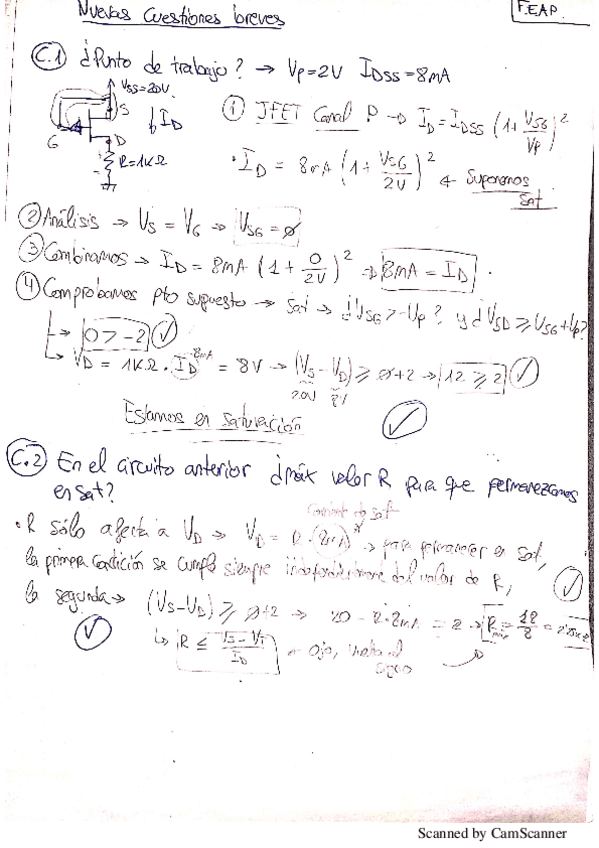 Nuevas Cuestiones breves
F.EAP.
C.1) ¿Punto de trabajo? → Vp=2V I_DSS=8mA
V_SS=20V
S
↓I_D
G
D
R=1KΩ
① JFET Canal P → I_D=I_DSS (1+V_SG/Vp)^2
· I_D = 8mA (1+V_SG/2V)^2 ← Suponemos Sat
② Análisis → V_S = V_G → V_SG=0
③ Combinamos → I_D = 8mA (1+0/2V)^2 ⇒ 8mA = I_D.
④ Comprobamos pto supuesto → Sat → ¿V_SG>-Vp? y ¿V_SD ≥ V_SG+Vp?
↳ 0>-2 ✓
↳ V_D = 1KΩ·I_D^8mA = 8V → (V_S-V_D) ≥ 0+2 → 12 ≥ 2 ✓
20V 8V
Estamos en saturación ✓
C.2) En el circuito anterior ¿máx valor R para que permanezcamos
en sat?
· R sólo afecta a V_D → V_D = R·(8mA) → para permanecer en sat,
la primera condición se cumple siempre independientemente del valor de R, ✓
la segunda → (V_S-V_D) ≥ 0+2 → 20-R·8mA = 2 → R = 18/8 =
✓ ↳ R ≤ / I_D ← ojo,
signo
Scanned by CamScanner